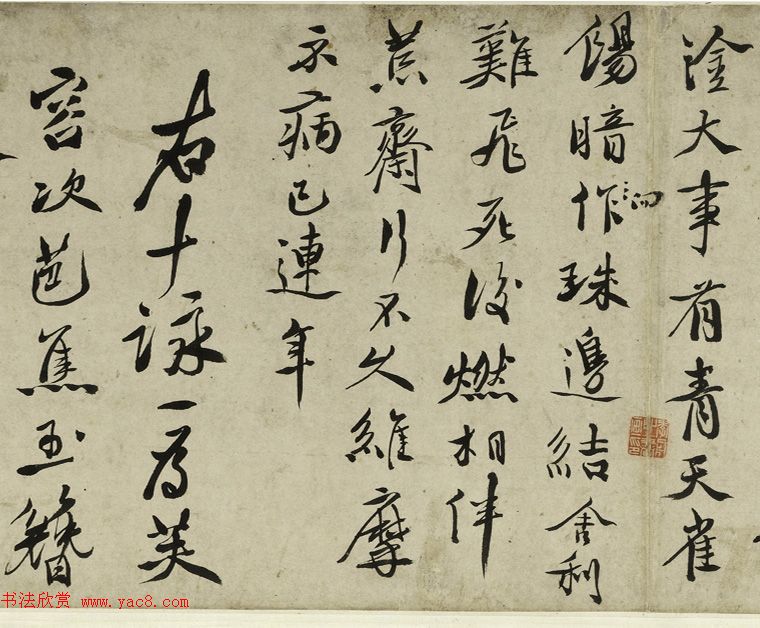 大事有青天雀
暗作珠邊結舍利
難飛死後燃相伴
荒齋行不久維摩
示病已連年
右十詠一為芙
容次芭蕉玉簪
书法欣赏 www.yac8.com